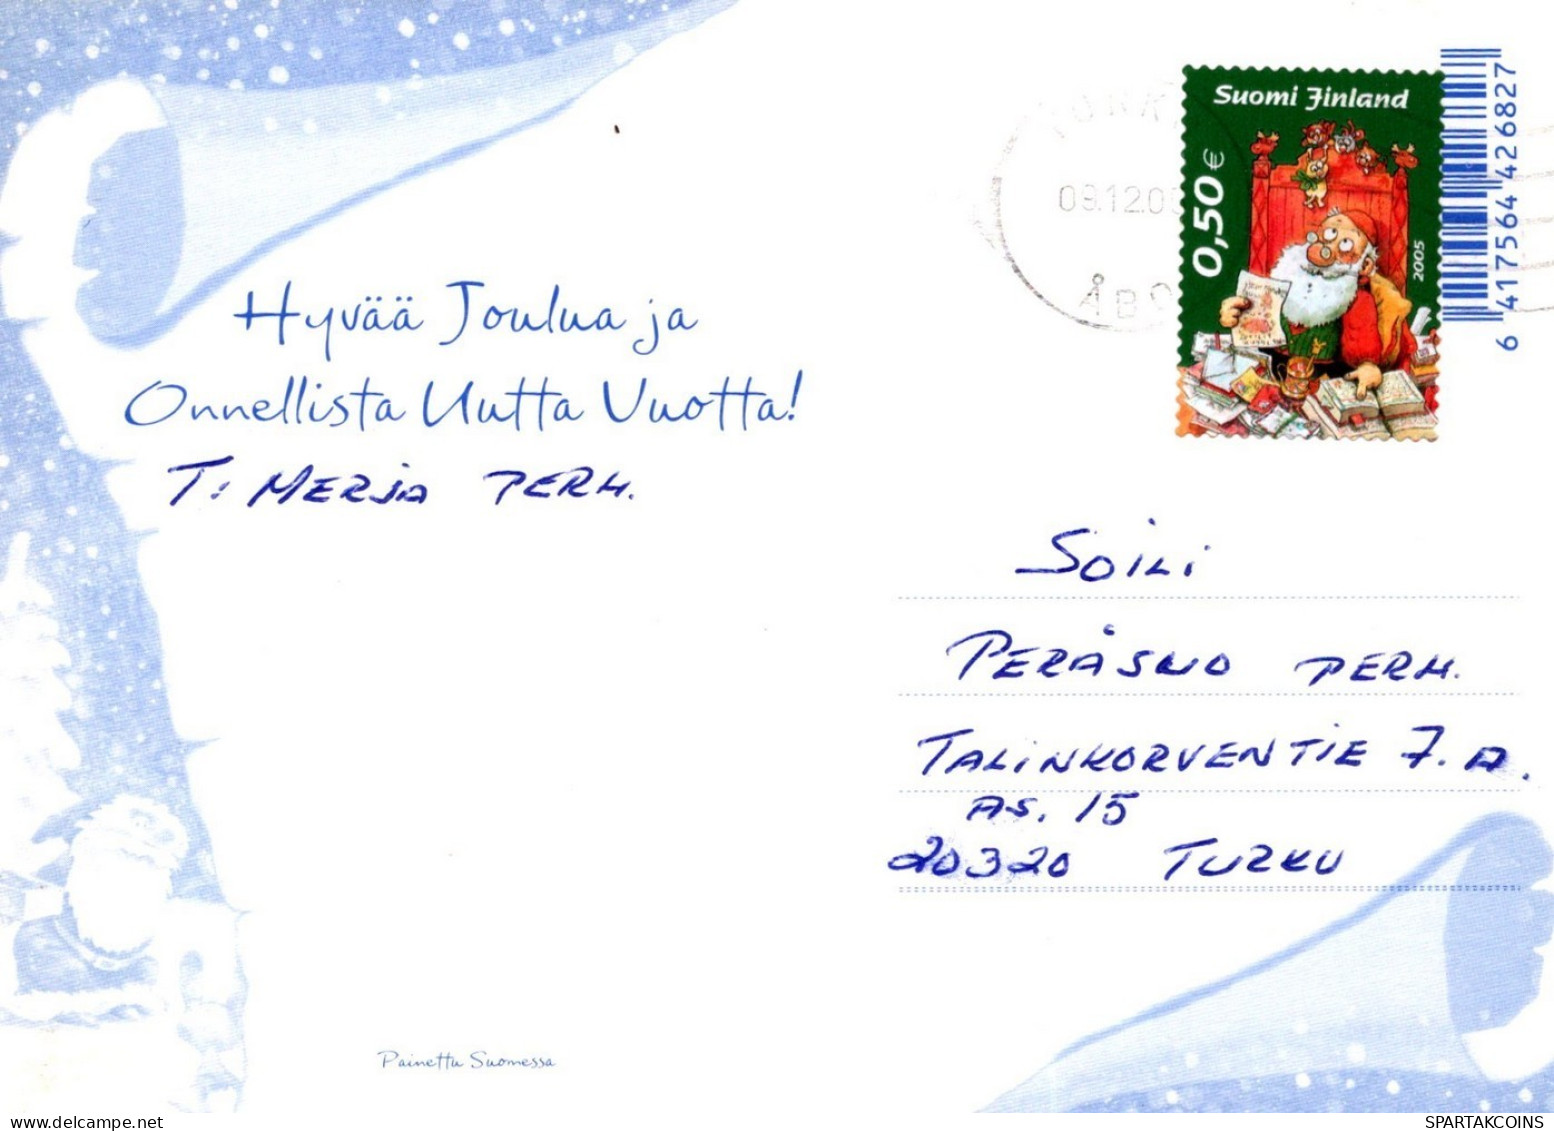 Suomi Finland
0,50 €
2005
6 417564 426827
09.12.05
ÅBO
Hyvää Joulua ja
Onnellista Uutta Vuotta!
T: MERJA PERH.
SOILI
PERÄSUO PERH.
TALINKORVENTIE 7. A.
AS. 15
20320 TURKU
Painettu Suomessa
delcampe.net
SPARTAKCOINS